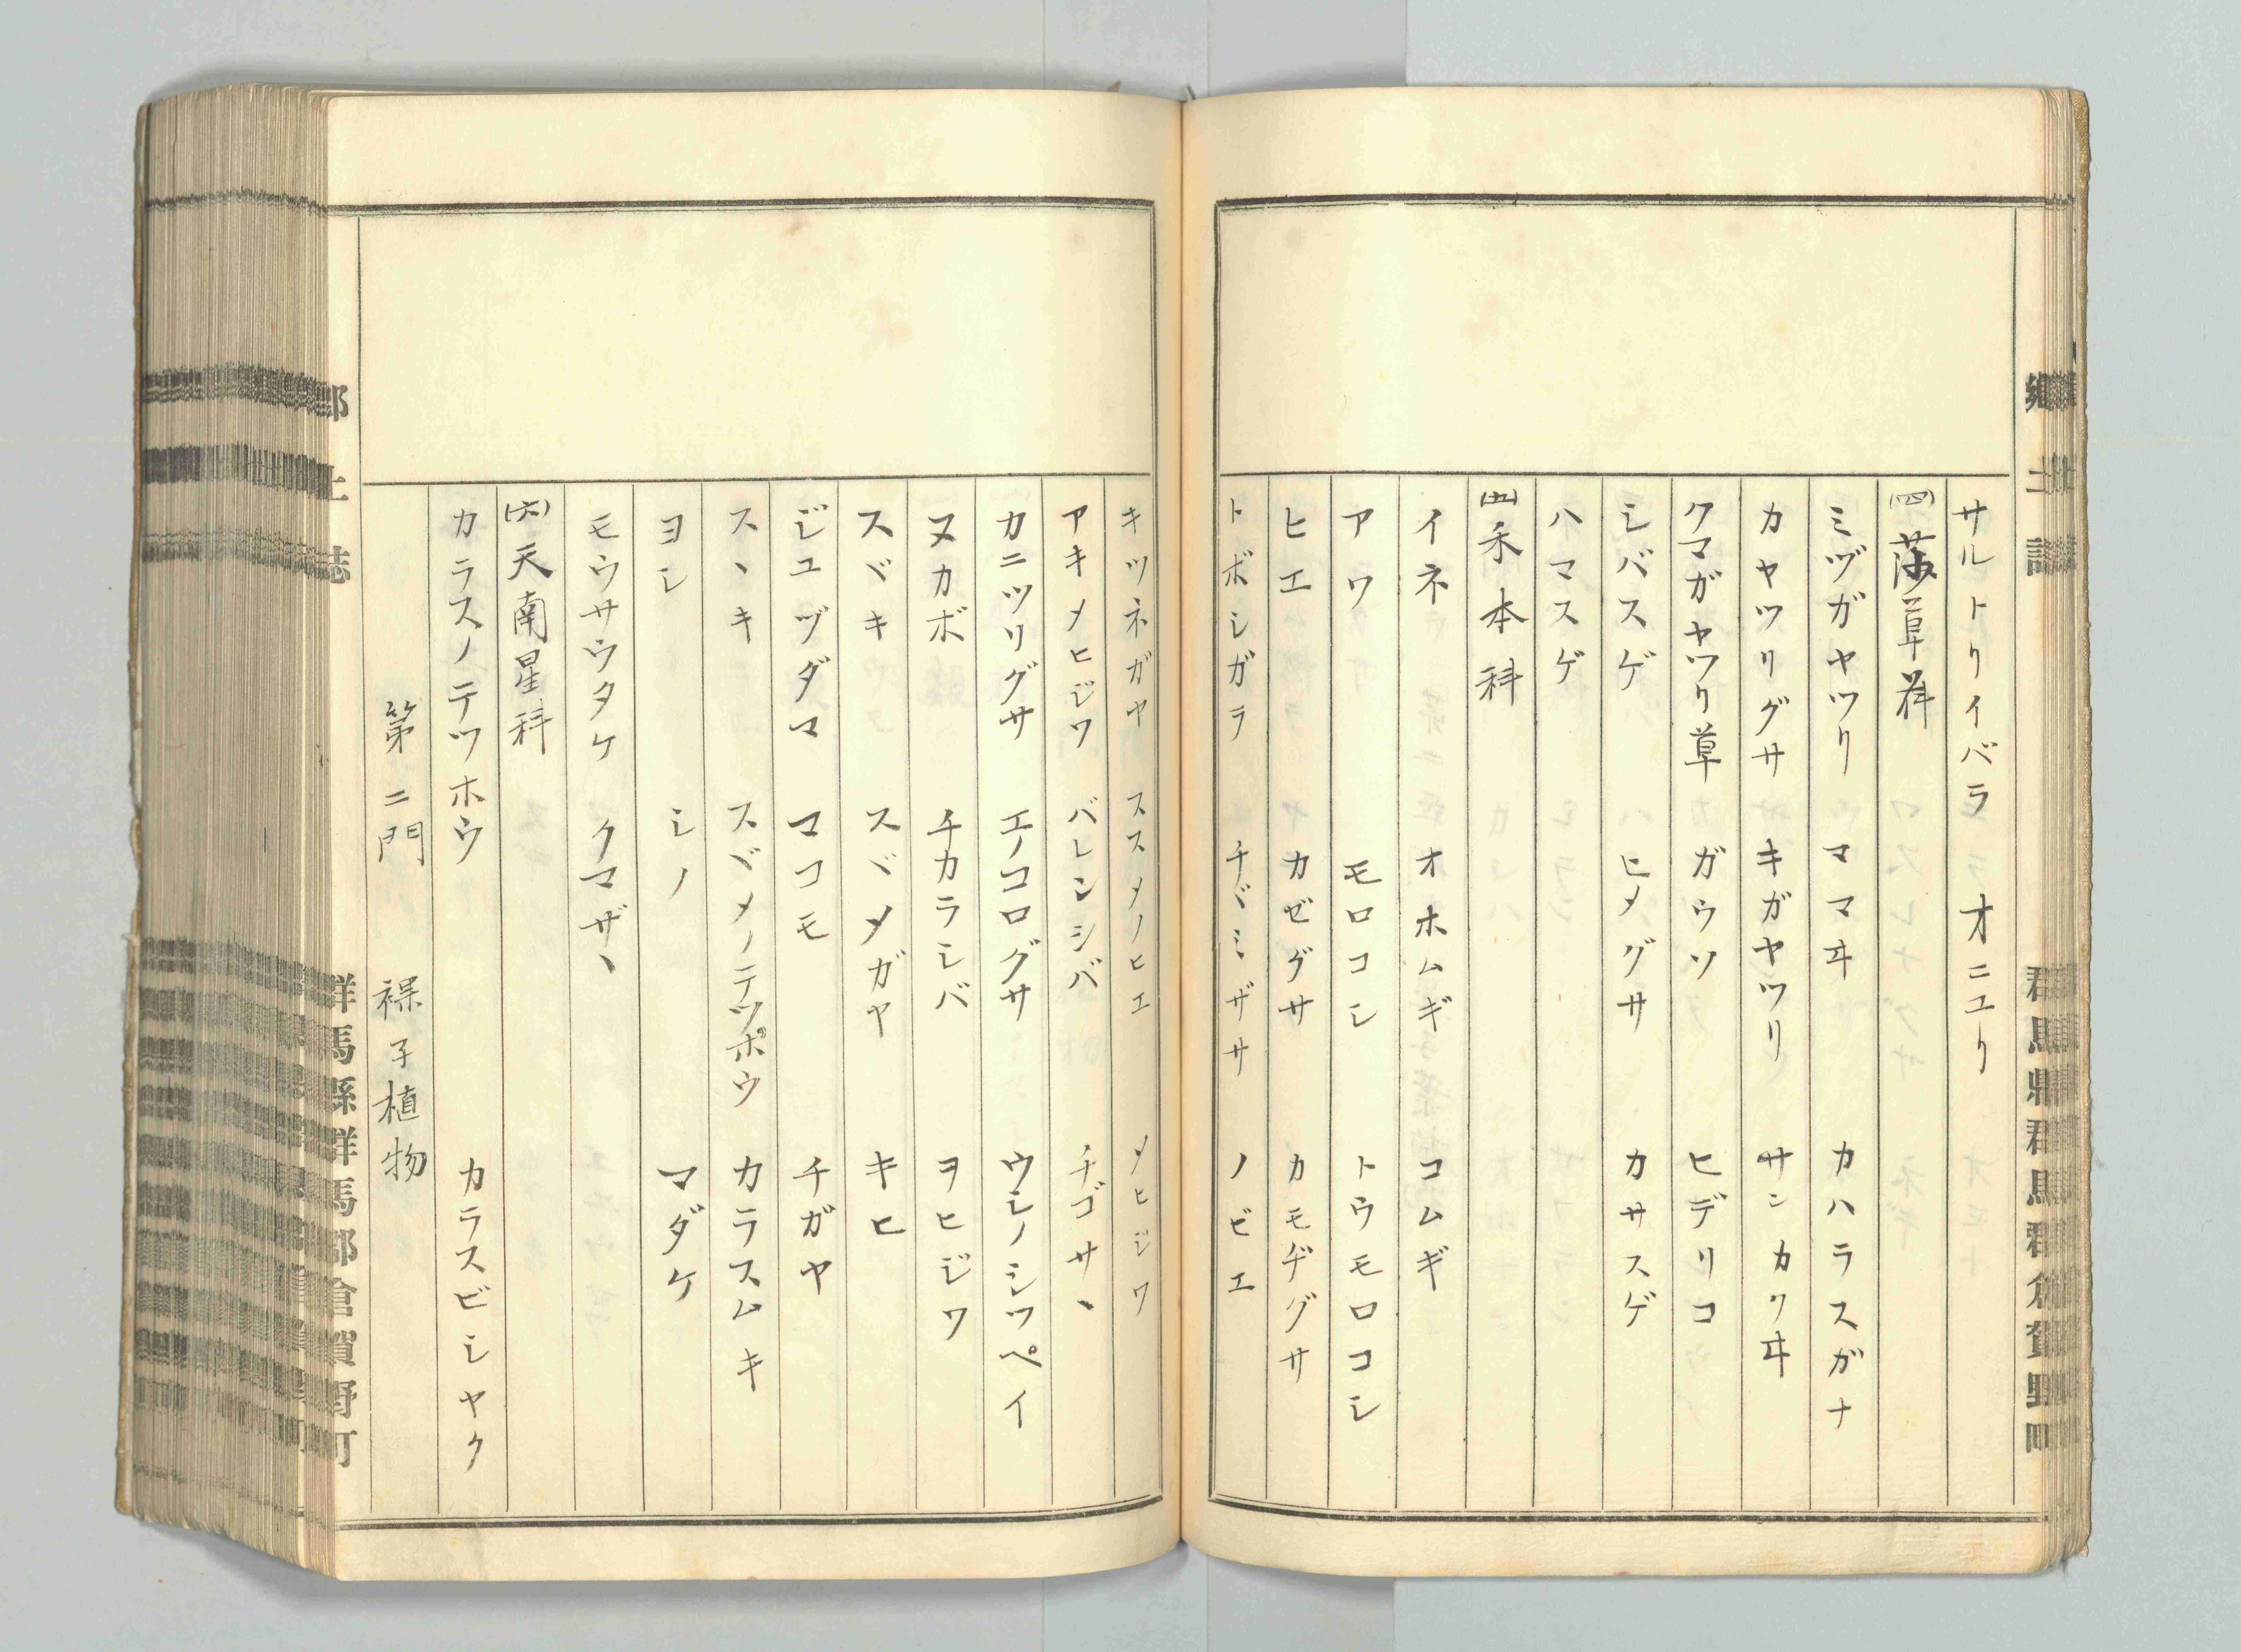 鄕土誌
群馬縣群馬郡倉賀野町
サルトリイバラ オニユリ
(四)莎草科
ミヅガヤツリ ママヰ カハラスガナ
カヤツリグサ キガヤツリ サンカクヰ
クマガヤツリ草 ガウソ ヒデリコ
シバスゲ ヒメグサ カサスゲ
ハマスゲ
(五)禾本科
イネ オホムギ コムギ
アワ モロコシ トウモロコシ
ヒエ カゼグサ カモヂグサ
トボシガラ チヾミザサ ノビエ
キツネガヤ ススメノヒエ メヒジワ
アキメヒジワ バレンシバ チゴサヽ
カニツリグサ エノコログサ ウシノシツペイ
ヌカボ チカラシバ ヲヒジワ
スヾキ スヾメガヤ キヒ
ジユヅダマ マコモ チガヤ
スヽキ スヾメノテツポウ カラスムキ
ヨシ シノ マダケ
モウサウタケ クマザヽ
(六)天南星科
カラスノテツホウ カラスビシヤク
第二門 裸子植物
郷土誌
群馬縣群馬郡倉賀野町